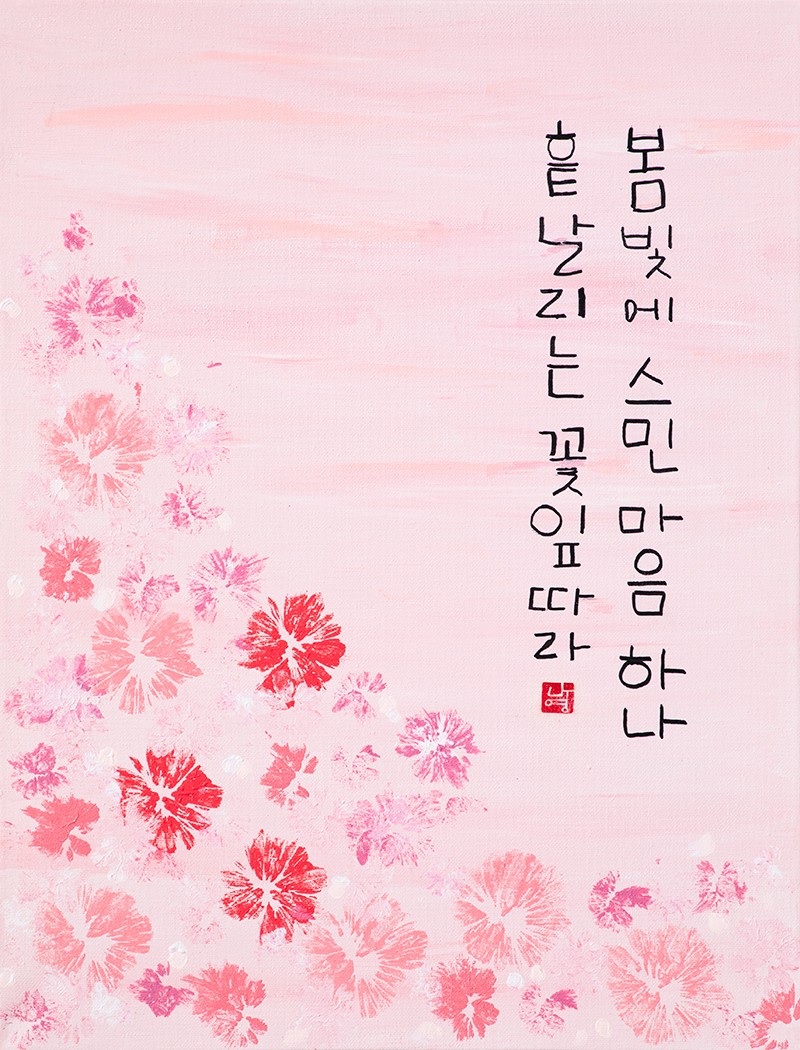 봄빛에 스민 마음 하나
흩날리는 꽃잎 따라